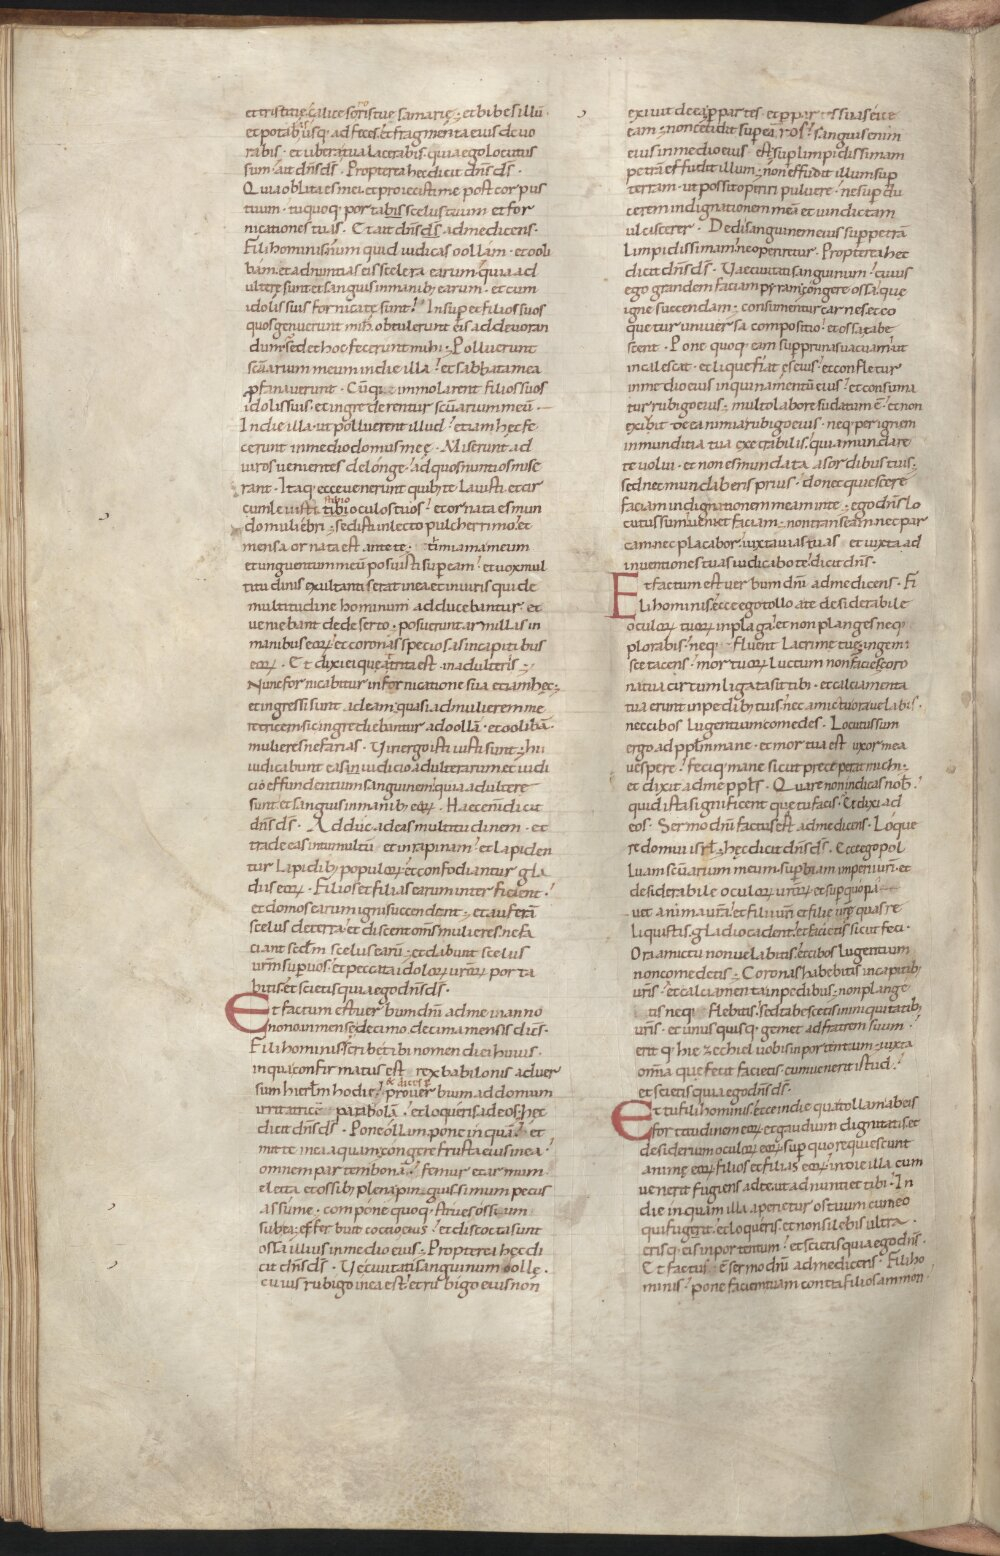 et tristitię calice sororis tuę samarię · et bibes illū
et potabis usq; ad feces · et fragmenta eius deuo
rabis · et ubera tua lacerabis · quia ego locutus
sum ait dn̄s ds̄ · Propterea hec dicit dn̄s ds̄ ·
Quia oblita es mei · et proiecisti me post corpus
tuum · tu quoq; porta bis scelus tuum et for
nicationes tuas · Et ait dn̄s ds̄ ad me dicens ·
Fili hominis num quid iudicas oollam · et ooli
bam · et adnuntias eis scelera earum · quia ad
ulterę sunt et sanguis in manib; earum · et cum
idolis suis fornicatę sunt · Insup et filios suos
quos genuerunt mihi obtulerunt eis ad deuoran
dum · Sed et hoc fecerunt mihi · Polluerunt
sc̄uarium meum in die illa · et sabbata mea
profanauerunt · Cūq; immolarent filios suos
idolis suis · et ingrederentur sc̄uarium meū ·
In die illa · ut polluerent illud · etiam hęc fe
cerunt in medio domus meę · Miserunt ad
uiros uenientes de longe · ad quos nuntios mise
rant · Itaq; ecce uenerunt quib; te lauisti · et cir
cumleuisti stibio oculos tuos · et ornata es mun
do muliebri · sedisti in lecto pulcherrimo · et
mensa ornata est ante te · timiama meum
et unguentum meū posuisti sup eam · et uox mul
titudinis exultantis erat in ea · et in uiris qui de
multitudine hominum adducebantur · et
ueniebant de deserto · posuerunt armillas in
manibus eoꝝ · et coronas speciosas in capitibus
eoꝝ · Et dixi ei quę attrita est in adulteriis ·
Nunc fornicabitur in fornicatione sua etiam hęc ·
et ingressi sunt ad eam · quasi ad mulierem me
retricem · sic ingrediebantur ad oollā · et oolibā ·
mulieres nefarias · Viri ergo isti iusti sunt · hii
iudicabunt eas in iudicio adulterarum · et iudi
cio effundentium sanguinem · quia adulterę
sunt · et sanguis in manib; eoꝝ · Haec enī dicit
dn̄s ds̄ · Adduc ad eas multitudinem · et
trade eas in tumultū · et in rapinam · et lapiden
tur lapidib; populoꝝ · et confodiantur gla
diis eoꝝ · Filios et filias earum interficient ·
et domos earum igni succendent · et auferā
scelus de terra · et discent om̄s mulieres ne fa
ciant scdm̄ scelus earū · et dabunt scelus
urm̄ sup uos · et peccata idoloꝝ uroꝝ porta
bitis · et scietis quia ego dn̄s ds̄ ·
Et factum est uerbum dn̄i ad me in anno
nono · in mense decimo · decima mensis dicēs ·
Fili hominis · scribe tibi nomen diei huius ·
in qua confirmatus est rex babilonis aduer
sum hierl̄m hodie · & dices ꝑ prouerbium ad domum
irritatricē parabolā · et loqueris ad eos · hęc
dicit dn̄s ds̄ · Pone ollam · pone inquā · et
mitte in ea aquam · congere frusta eius in ea ·
omnem partem bonā · femur et armum ·
electa et ossib; plena · pinguissimum pecus
assume · compone quoq; strues ossium
sub ea · efferbuit coctio eius · et discocta sunt
ossa illius in medio eius · Propterea hęc di
cit dn̄s ds̄ · Vę ciuitati sanguinum ollę ·
cuius rubigo in ea est · et rubigo eius non
exiuit de ea · p partes · et p partes suas eice
eam · non cecidit sup ea sors · sanguis enim
eius in medio eius est · sup limpidissimam
petrā effudit illum · non effudit illum sup
terram · ut possit operiri puluere · ne sup du
cerem indignationem meā · et uindictam
ulciscerer · Dedi sanguinem eius sup petrā
limpidissimam · ne operiretur · Propterea hęc
dicit dn̄s ds̄ · Vę ciuitati sanguinum · cuius
ego grandem faciam pyram · congere ossa · quę
igne succendam · consumentur carnes · et co
quetur uniuersa compositio · et ossa tabe
scent · Pone quoq; eam sup prunas uacuam · ut
incalescat · et liquefiat ęs eius · et confletur
in medio eius inquinamentū eius · et consuma
tur rubigo eius · multo labore sudatum ē · et non
exibit de ea nimia rubigo eius · neq; per ignem
inmunditia tua exęcrabilis · quia mundare
te uolui · et non es mundata a sordibus tuis ·
sed nec mundaberis prius · donec quiescere
faciam indignationem meam in te · ego dn̄s lo
cutus sum · ueniet · faciam · non transeā · nec par
cam · nec placabor · iuxta uias tuas et iuxta ad
inuentiones tuas iudicabo te · dicit dn̄s ·
Et factum est uerbum dn̄i ad me dicens · Fi
li hominis · ecce ego tollo a te desiderabile
oculoꝝ tuoꝝ in plaga · et non planges · neq;
plorabis · neq; fluent lacrimę tuę · ingemi
sce tacens · mortuoꝝ luctum non facies · coro
na tua circumligata sit tibi · et calciamenta
tua erunt in pedib; tuis · nec amictu ora uelabis ·
nec cibos lugentium comedes · Locutus sum
ergo ad ppl̄m mane · et mortua est uxor mea
uespere · feciq; mane sicut pręceperat michi ·
et dixit ad me ppl̄s · Quare non indicas nob̄ ·
quid ista significent quę tu facis · Et dixi ad
eos · Sermo dn̄i factus est ad me dicens · Loque
re domui isrl̄ · hęc dicit dn̄s ds̄ · Ecce ego pol
luam sc̄uarium meum · supbiam imperii uri · et
desiderabile oculoꝝ uroꝝ · et sup quo pa
uet anima ura · et filii uri · et filię urę quas re
liquistis · gladio cadent · et facietis sicut feci ·
Ora amictu non uelabitis · et cibos lugentium
non comedetis · Coronas habebitis in capitib;
uris · et calciamenta in pedibus · non plange
tis neq; flebitis · sed tabescetis in iniquitatib;
uris · et unus quisq; gemet ad fratrem suum ·
eritq; hiezechiel uobis in portentum · iuxta
omīa quę fecit facietis · cum uenerit istud ·
et scietis quia ego dn̄s ds̄ ·
Et tu fili hominis · ecce in die qua tollam ab eis
fortitudinem eoꝝ · et gaudium dignitatis · et
desiderium oculoꝝ eoꝝ · sup quo requiescunt
animę eoꝝ · filios et filias eoꝝ · in die illa cum
uenerit fugiens ad te · ut adnuntiet tibi · In
die inquam illa aperietur os tuum cum eo
qui fugerit · et loqueris · et non silebis ultra ·
erisq; eis in portentum · et scietis quia ego dn̄s ·
Et factus ē sermo dn̄i ad me dicens · Fili ho
minis · pone faciem tuam contra filios ammon ·